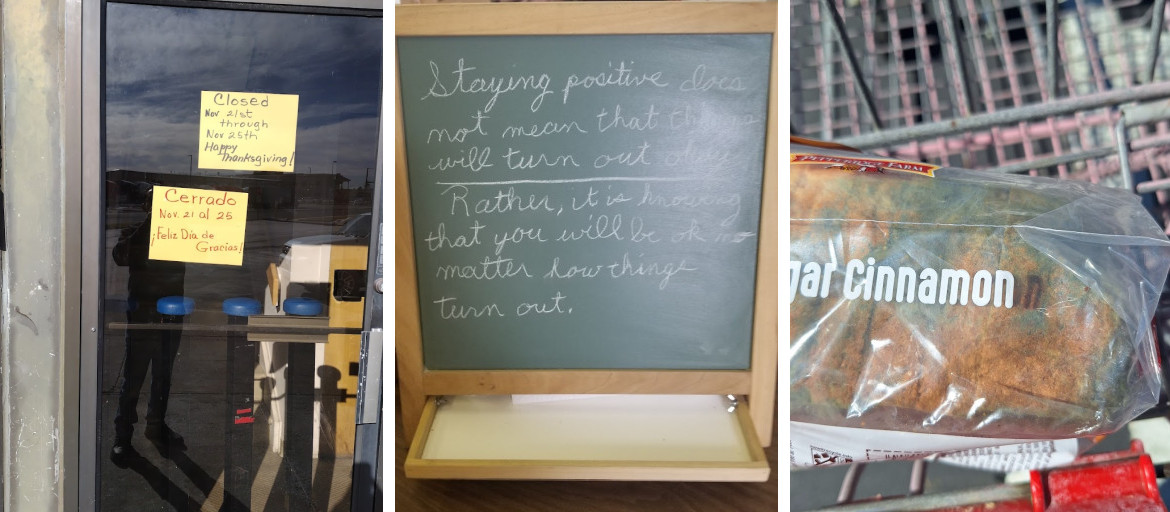 Closed
Nov 21st
through
Nov 25th
Happy
Thanksgiving!
Cerrado
Nov. 21 al 25
¡Feliz Día de
Gracias!
Staying positive does
not mean that things
will turn out
Rather, it is knowing
that you will be ok no
matter how things
turn out.
PEPPERIDGE FARM
gar Cinnamon